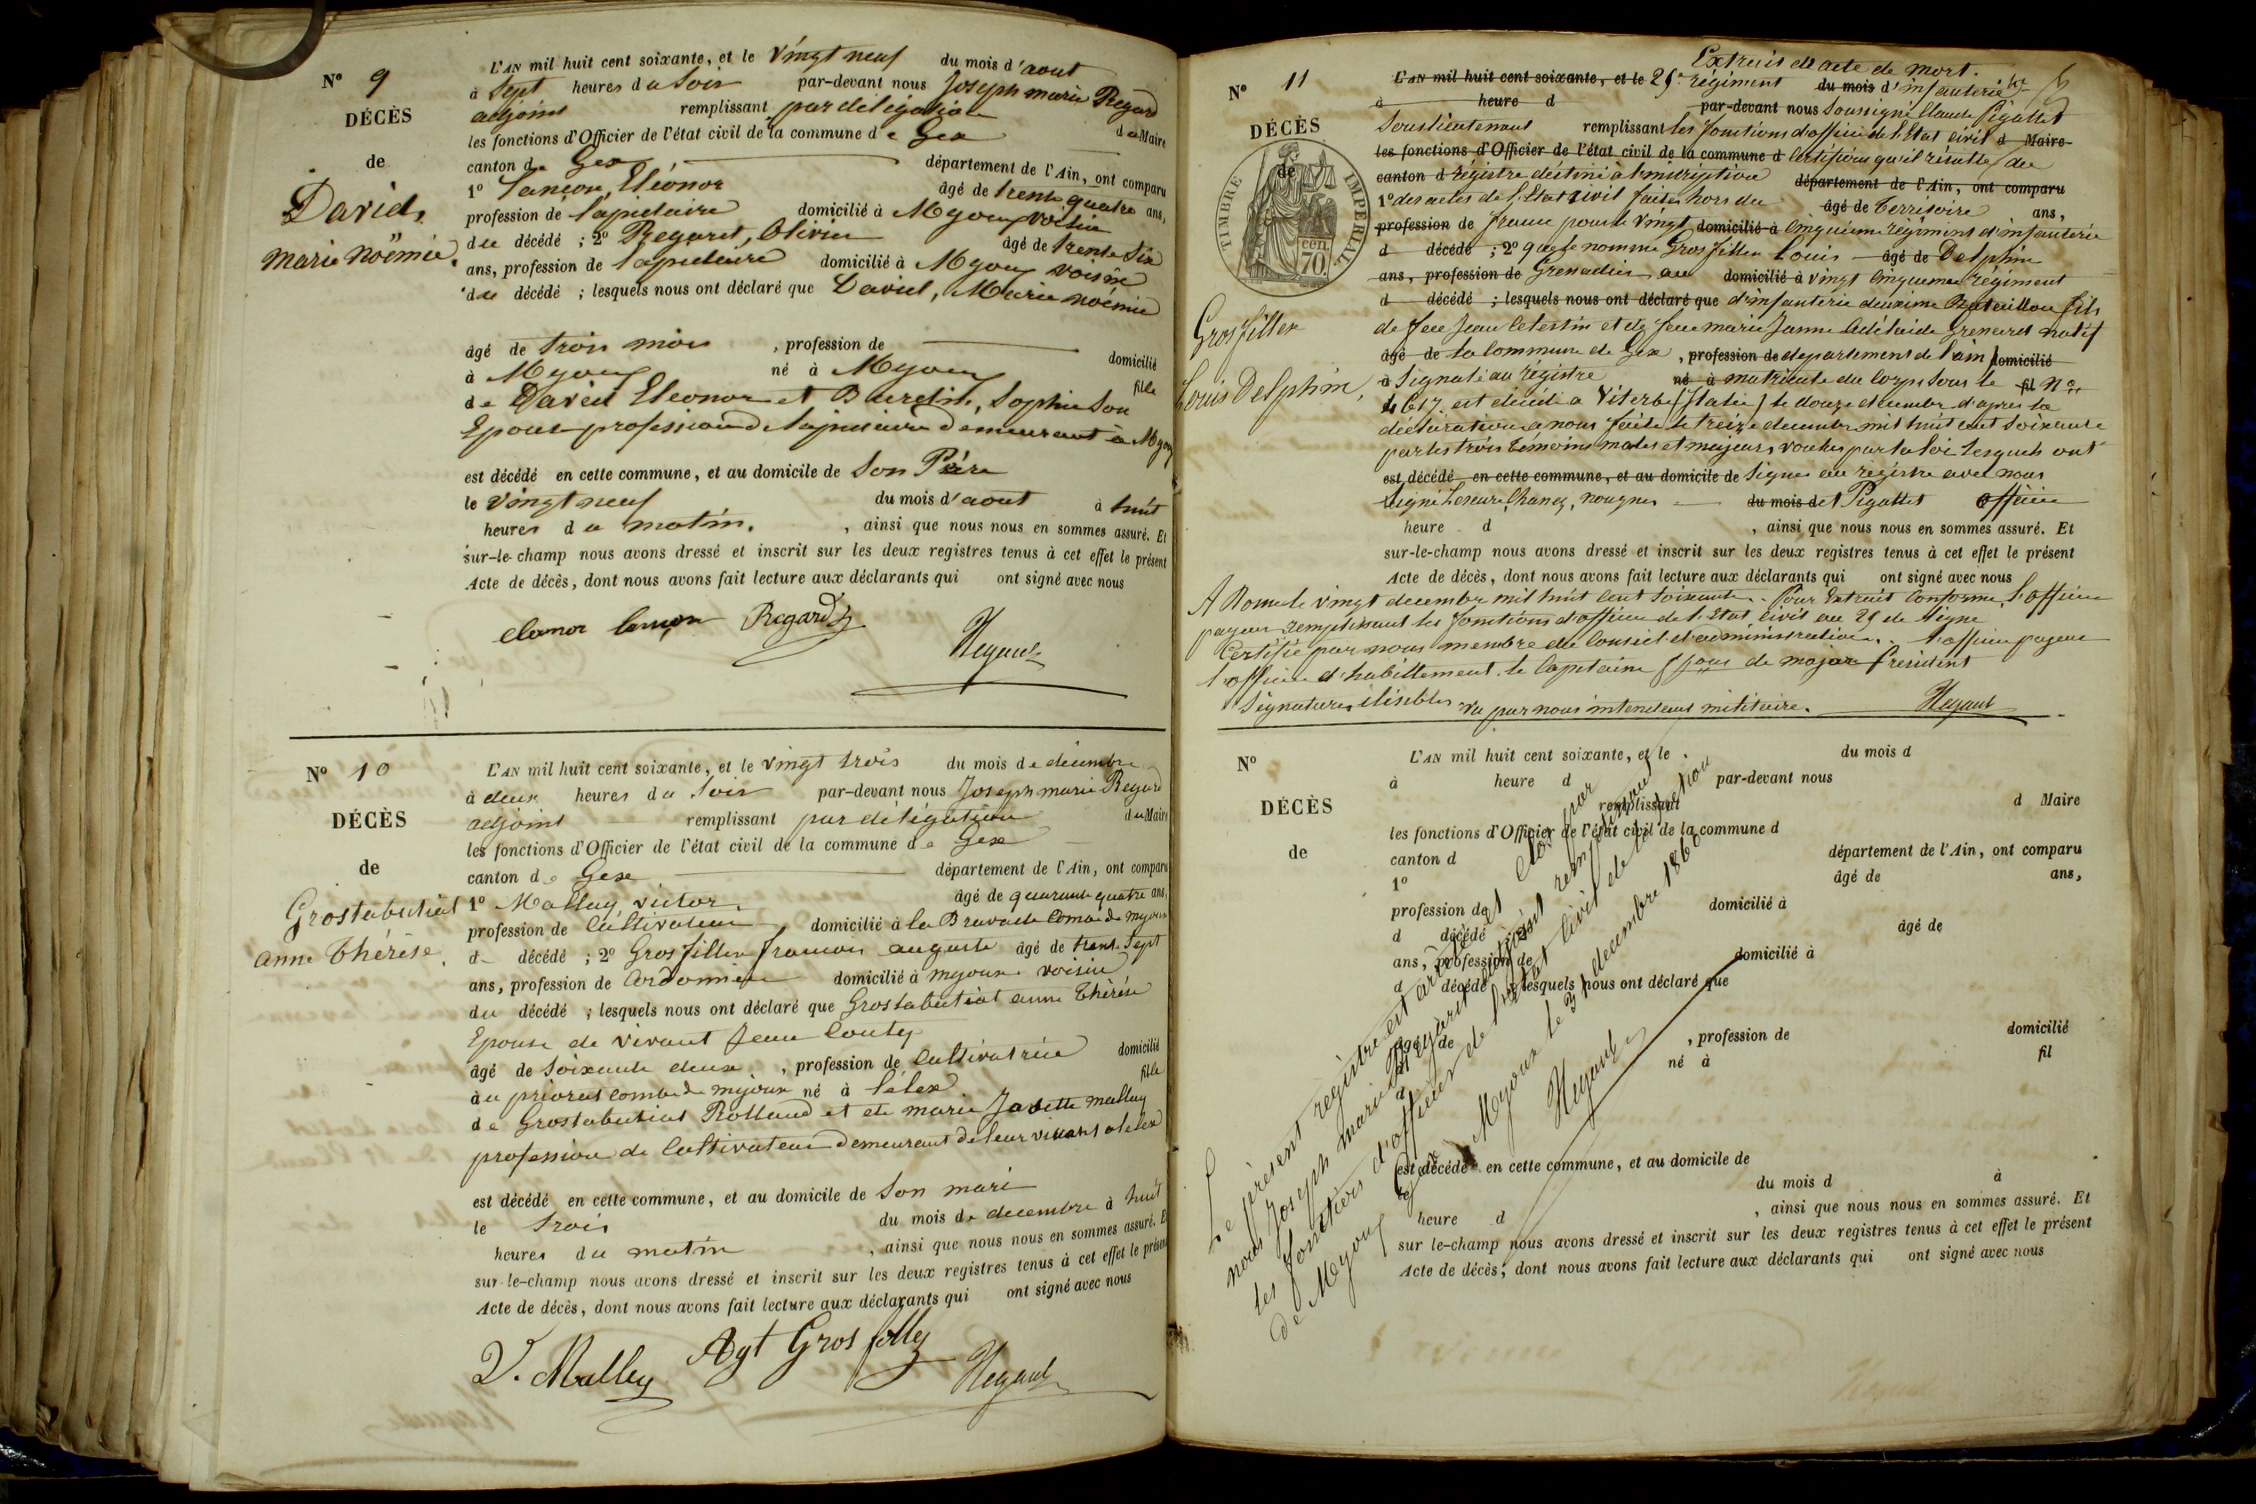 N° 9
DÉCÈS
de
David,
Marie Noëmie.
L'AN mil huit cent soixante, et le vingt neuf du mois d'aout
à Sept heures du Soir par-devant nous Joseph marie Regard
adjoint remplissant par délégation
les fonctions d'Officier de l'état civil de la commune de Gex du Maire
canton de Gex département de l'Ain, ont comparu
1° Lançon, Eléonor âgé de trente quatre ans,
profession de lapidaire domicilié à Mijoux voisin
du décédé ; 2° Regard, Olivier âgé de trente Six
ans, profession de lapidaire domicilié à Mijoux voisin
du décédé ; lesquels nous ont déclaré que David, Marie noémie
âgé de trois mois , profession de domicilié
à Mijoux né à Mijoux fille
de David Eleonor et Sophie Son
Epouse profession de lapidaire demeurant à
est décédé en cette commune, et au domicile de Son Père
le vingt neuf du mois d'aout à huit
heures du matin. , ainsi que nous nous en sommes assuré. Et
sur-le-champ nous avons dressé et inscrit sur les deux registres tenus à cet effet le présent
Acte de décès, dont nous avons fait lecture aux déclarants qui ont signé avec nous
elonor lançon Regard
Regard
N° 10
DÉCÈS
de
Grostabutiat
anne Thérèse.
L'AN mil huit cent soixante, et le vingt trois du mois de décembre
à deux heures du Soir par-devant nous Joseph marie Regard
adjoint remplissant par délégation du Maire
les fonctions d'Officier de l'état civil de la commune de Gex
canton de Gex département de l'Ain, ont comparu
1° Mallay victor âgé de quarante quatre ans,
profession de Cultivateur domicilié à la
d décédé ; 2° Grosfilley françois auguste âgé de trente Sept
ans, profession de Cordonnier domicilié à mijoux voisin
du décédé ; lesquels nous ont déclaré que Grostabutiat anne Thérèse
Epouse de vivant Jean
âgé de Soixante deux , profession de Cultivatrice domicilié
au mijoux né à Lélex fille
de Grostabutiat Rolland et de marie Josette mallay
profession de Cultivateur demeurant de leur vivant a lelex
est décédé en cette commune, et au domicile de Son mari
le trois du mois de decembre à huit
heures du matin , ainsi que nous nous en sommes assuré. Et
sur-le-champ nous avons dressé et inscrit sur les deux registres tenus à cet effet le présent
Acte de décès, dont nous avons fait lecture aux déclarants qui ont signé avec nous
V. Malley Agt Grosfilley
Regard
N° 11
DÉCÈS
de
TIMBRE IMPERIAL
cen.
70.
Grosfilley
Louis Delphin,
Extrait de acte de mort.
L'AN mil huit cent soixante, et le 25e régiment du mois d'infanterie
à heure d par-devant nous Soussigné Claude Pigallet
Souslieutenant remplissant les fonctions d'officier de l'Etat civil d Maire
les fonctions d'Officier de l'état civil de la commune d Certifions qu'il résulte du
canton d régistre destiné à l'inscription département de l'Ain, ont comparu
1° des actes de l'Etat civil faites hors du âgé de Territoire ans,
profession de france pour le vingt domicilié à cinquieme régiment d'infanterie
d décédé ; 2° que le nommé Grosfilley Louis âgé de Delphin
ans, profession de Grenadier au domicilié à vingt cinquieme régiment
d décédé ; lesquels nous ont déclaré que d'infanterie deuxieme Bataillon fils
de feu Jean Celestin et de feue marie Jeanne Adélaide Grenard natif
âgé de la Commune de Gex , profession de departement de l'ain domicilié
à Signalé au régistre né à matricule du Corps Sous le fil N°
617. est décédé a Viterbe (Italie) le douze décembre d'apres la
déclaration a nous faite le treize decembre mil huit cent Soixante
par les trois témoins males et majeurs voulus par la loi lesquels ont
est décédé en cette commune, et au domicile de Signé au régistre avec nous
Signé du mois de et Pigallet officier
heure d , ainsi que nous nous en sommes assuré. Et
sur-le-champ nous avons dressé et inscrit sur les deux registres tenus à cet effet le présent
Acte de décès, dont nous avons fait lecture aux déclarants qui ont signé avec nous
A Rome le vingt decembre mil huit cent Soixante. Pour Extrait Conforme, l'officier
payeur remplissant les fonctions d'officier de l'Etat civil au 25 de ligne
Certifié par nous membre du Conseil d'administration. l'officier payeur
l'officier d'habillement. le Capitaine de major President
Signatures ilisibles vu par nous intendant militaire. Regard
N°
DÉCÈS
de
L'AN mil huit cent soixante, et le du mois d
à heure d par-devant nous
remplissant d Maire
les fonctions d'Officier de l'état civil de la commune d
canton d département de l'Ain, ont comparu
1° âgé de ans,
profession de domicilié à
d décédé ; 2° âgé de
ans, profession de domicilié à
d décédé ; lesquels nous ont déclaré que
âgé de , profession de domicilié
à né à fil
est décédé en cette commune, et au domicile de
du mois d à
heure d , ainsi que nous nous en sommes assuré. Et
sur le-champ nous avons dressé et inscrit sur les deux registres tenus à cet effet le présent
Acte de décès, dont nous avons fait lecture aux déclarants qui ont signé avec nous
Le présent régistre est arrêté et clos par
nous Joseph marie Regard adjoint remplissant
les fonctions d'officier de l'Etat civil de la Section
de Mijoux
Mijoux le 31 decembre 1860
Regard